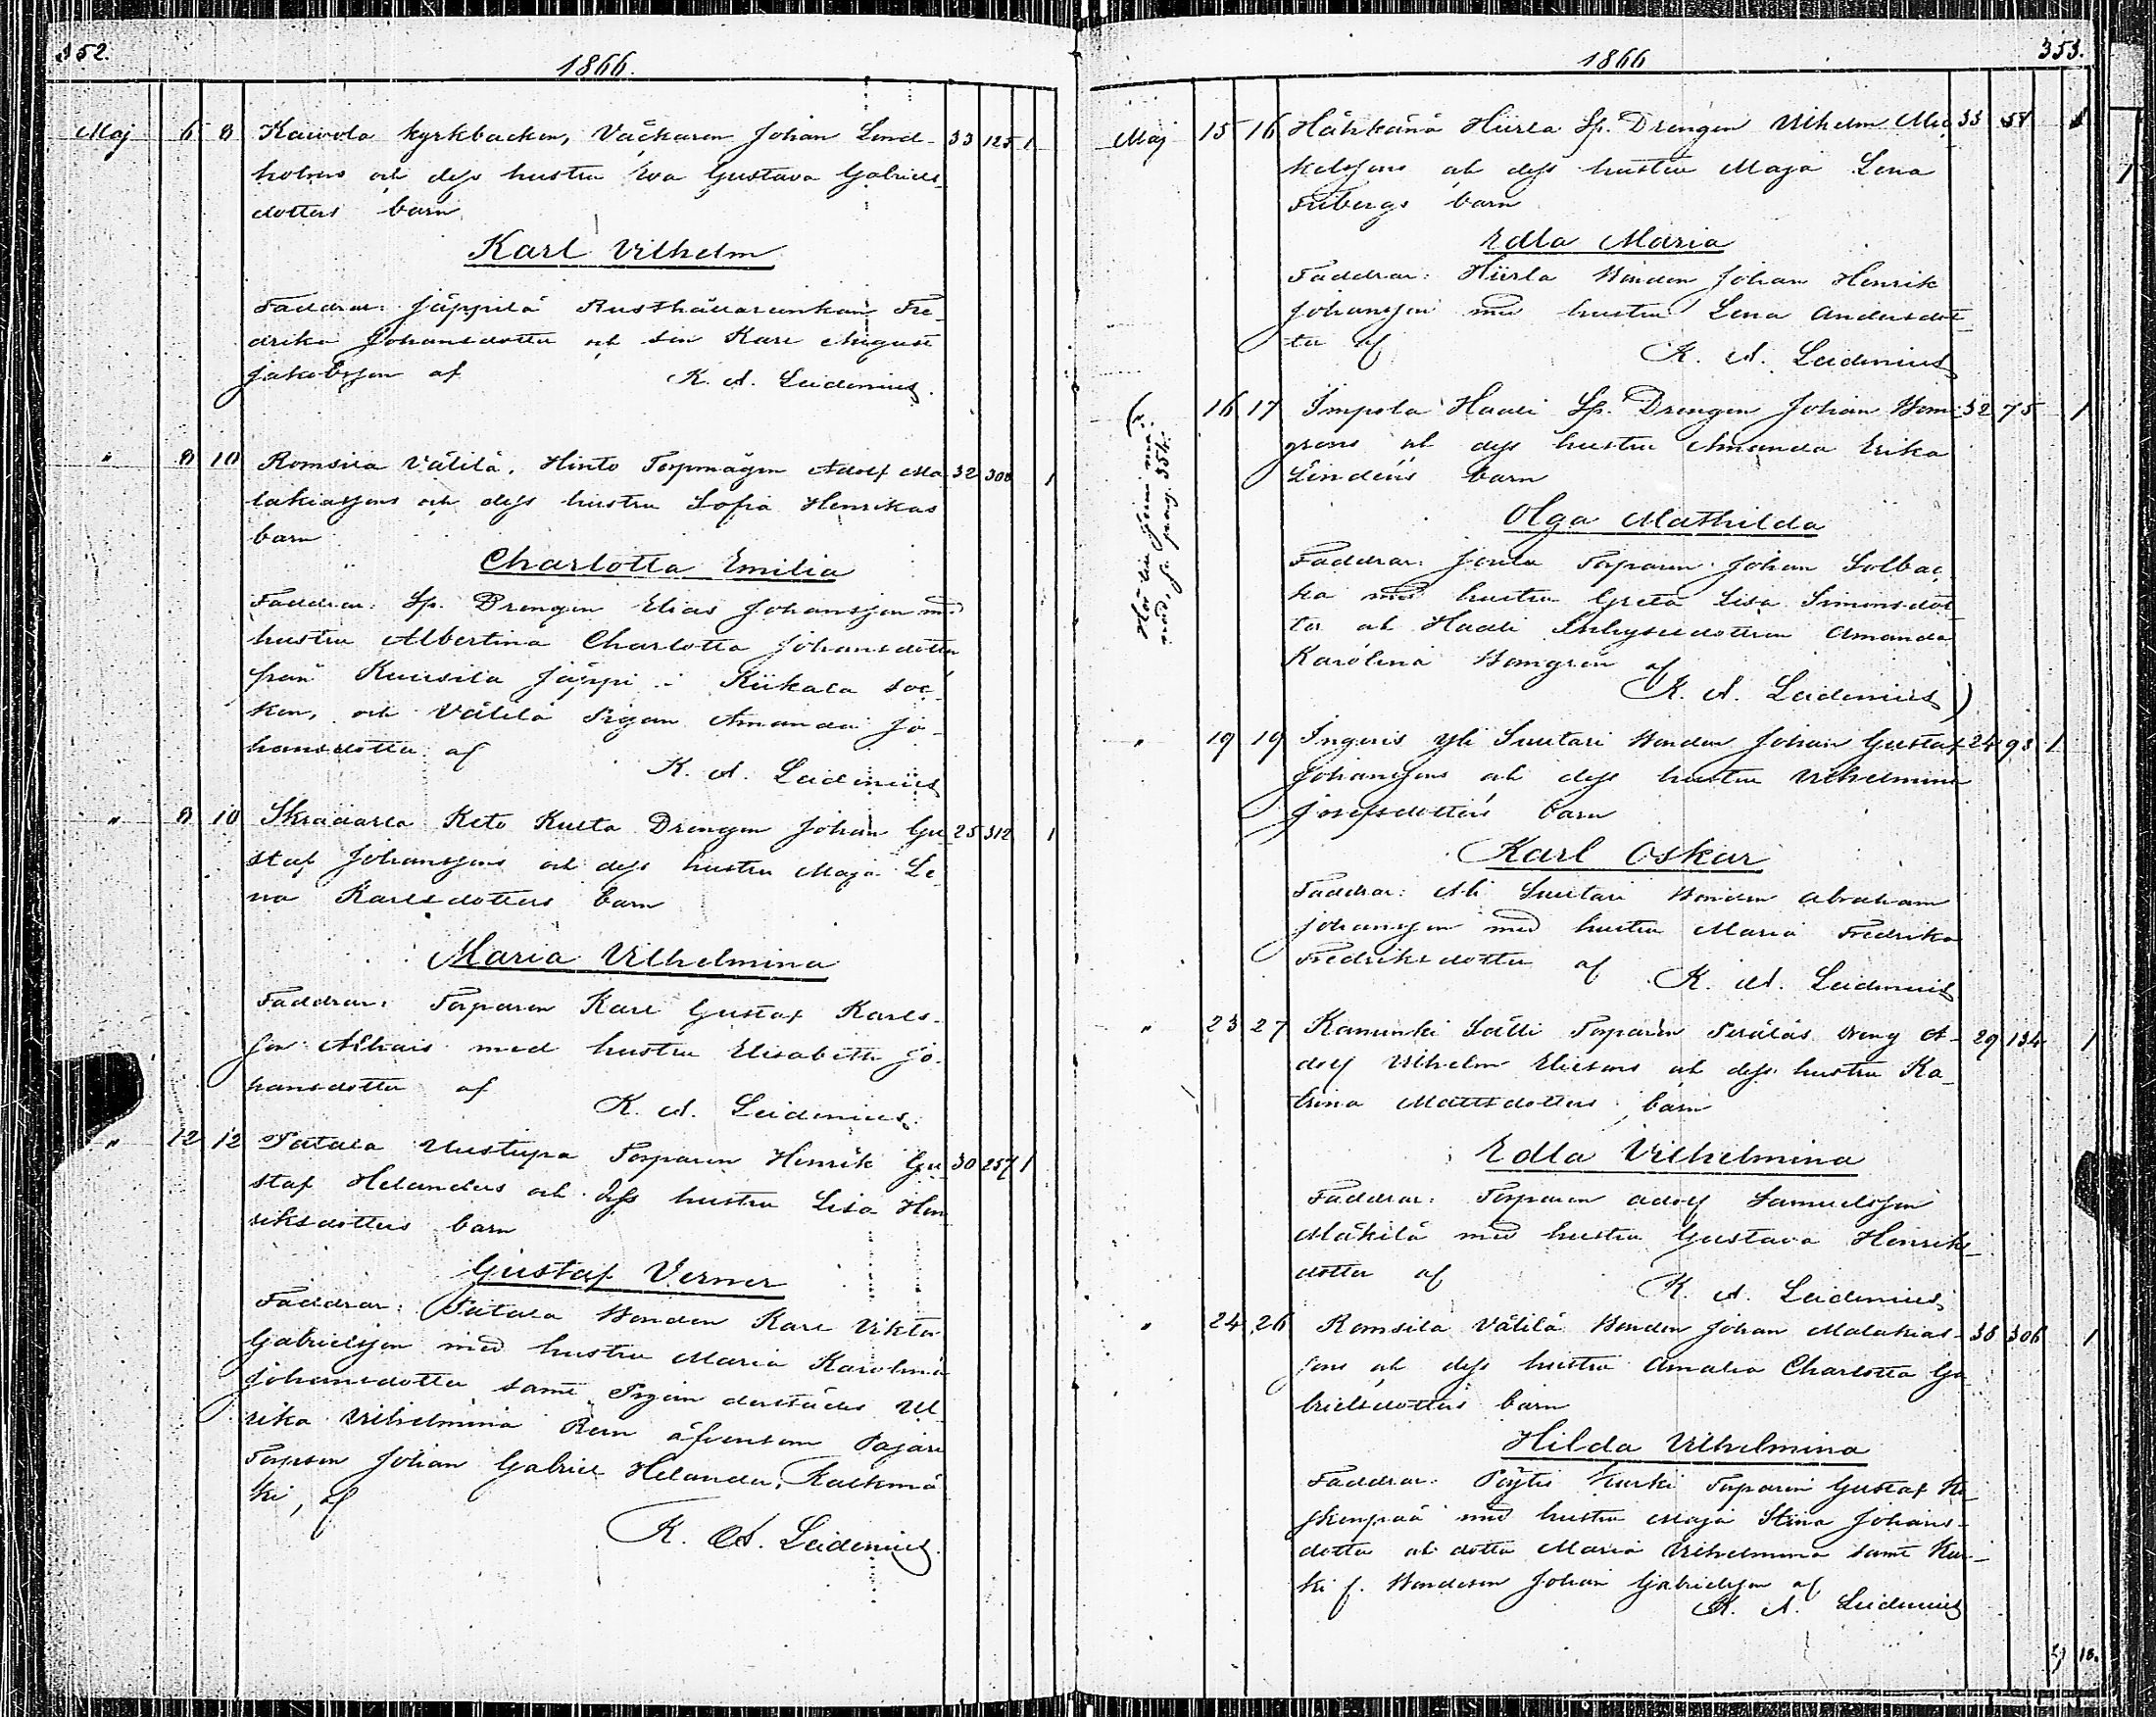 352.
1866.
Maj 6 8 Kaivola kyrkbacken, Väckaren Johan Lind- 33 125 1
holms och dess hustru Eva Gustava Gabriels-
dotters barn
Karl Vilhelm
Faddrar: Jäppilä Rusthållareenkan Fre-
drika Johansdotter och son Karl August
Jakobsson af K. A. Leidenius.
" 8 10 Romsila Välilä, Hinto Torpmågen Adolf Ma- 32 308 1
lakiassons och dess hustru Sofia Henrikas
barn
Charlotta Emilia
Faddrar: Sp. Drengen Elias Johansson med
hustru Albertina Charlotta Johansdotter
från Kuusila Järpi i Kiikala soc-
ken, och Välilä Pigan Amanda Jo-
hansdotter af
K. A. Leidenius
" 8 10 Skrädarla Keto Kulta Drengen Johan Gu- 25 312 1
staf Johanssons och dess hustru Maja Le-
na Karlsdotters barn
Maria Vilhelmina
Faddrar: Torparen Karl Gustaf Karls-
son med hustru Elisabeth Jo-
hansdotter af
K. A. Leidenius.
" 12 12 Patala Uustupa Torparen Henrik Gu- 30 257 1
staf Helanders och dess hustru Lisa Hen-
riksdotters barn
Gustaf Verner
Faddrar: Patala Bonden Karl Viktor
Gabrielsson med hustru Maria Karolina
Johansdotter samt Pigan derstädes Ul-
rika Vilhelmina äfvensom Pajari
Torpson Johan Gabriel Helander, Kalkmä-
ki, af
K. A. Leidenius.
1866
353.
Maj 15 16 Hähkänä Hiirla Sp. Drengen Vilhelm Mi- 33 58 1
kelssons och dess hustru Maja Lena
Fribergs barn
Edla Maria
Faddrar: Hiirla Bonden Johan Henrik
Johansson med hustru Lena Andersdot-
ter af
K. A. Leidenius
(Hör till Juni må-
nad, se pag. 354.
16 17 Impola Haali Sp. Drengen Johan Bom- 32 75 1
grens och dess hustru Amanda Erika
Lindéns barn
Olga Mathilda
Faddrar: Torparen Johan Solbac-
ka med hustru Greta Lisa Simonsdot-
ter och Haali Inhysesdottren Amanda
Karolina Bomgrén af
K. A. Leidenius)
" 19 19 Ingeris Yli Suutari Bonden Johan Gustaf 24 93 1
Johanssons och dess hustru Vilhelmina
Josefsdotters barn
Karl Oskar
Faddrar: Ali Suutari Bonden Abraham
Johansson med hustru Maria Fredrika
Fredriksdotter af
K. A. Leidenius
" 23 27 Kaninki Sälli Torparen Peräläs dreng A- 29 134 1
dolf Vilhelm Eliesons och dess hustru Ka-
trina Mattsdotters barn
Edla Vilhelmina
Faddrar: Torparen Adolf Samuelsson
Mäkilä med hustru Gustava Henriks-
dotter af
K. A. Leidenius
" 24 26 Romsila Välilä Bonden Johan Malakias- 38 306 1
sons och dess hustru Amalia Charlotta Ga-
brielsdotters barn
Hilda Vilhelmina
Faddrar: Pöytiö Kurki Torparen Gustaf Ke-
skenpää med hustru Maja Stina Johans-
dotter och dotter Maria Vilhelmina samt Kur-
ki f. Bondeson Johan Gabrielsson af
K. A. Leidenius